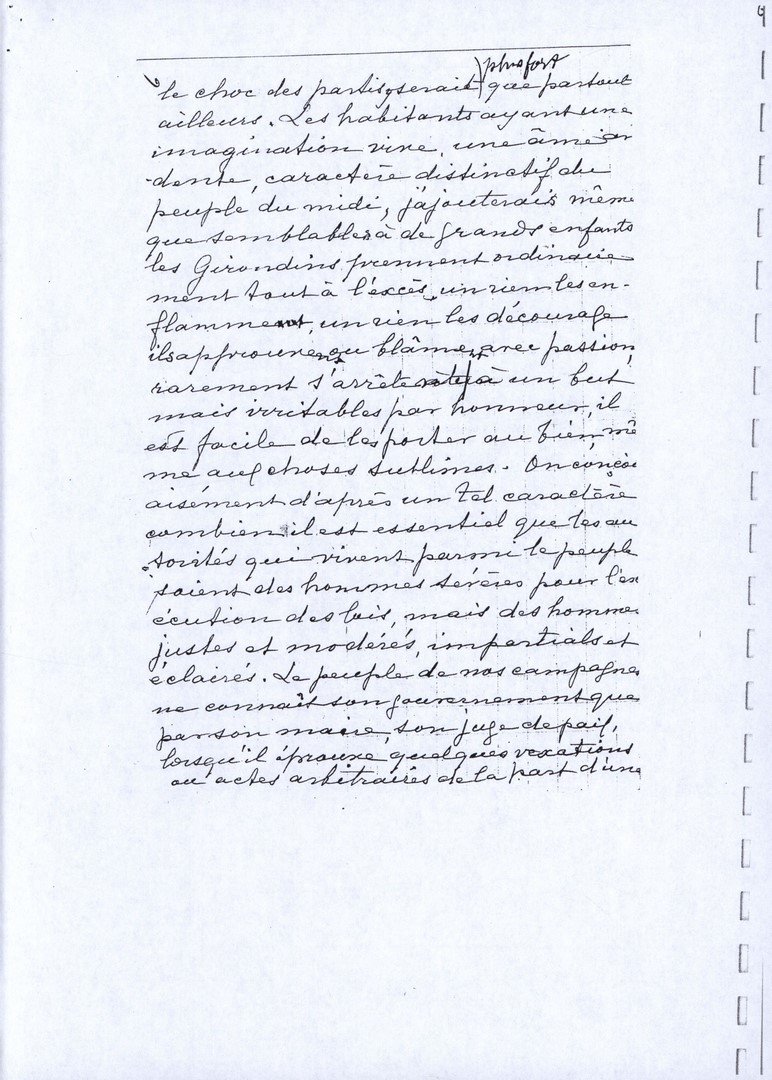 plus fort
le choc des partis y serait que partout
ailleurs. Les habitants ayant une
imagination vive, une âme ar
-dente, caractère distinctif du
peuple du midi, j'ajouterais même
que semblables à de grands enfants
les Girondins prennent ordinaire
ment tout à l'excès, un rien les en-
flamment, un rien les décourage
ils approuvent ou blâment avec passion,
rarement s'arrêtent à un but
mais irritables par honneur, il
est facile de les porter au bien, mê
me aux choses sublimes. On conçoi
aisément d'après un tel caractère
combien il est essentiel que les au
torités qui vivent parmi le peuple
soient des hommes sévères pour l'ex
écution des lois, mais des hommes
justes et modérés, impartials et
éclairés. Le peuple de nos campagnes
ne connaît son gouvernement que
par son maire, son juge de paix,
lorsqu'il éprouve quelques vexations
ou actes arbitraires de la part d'une